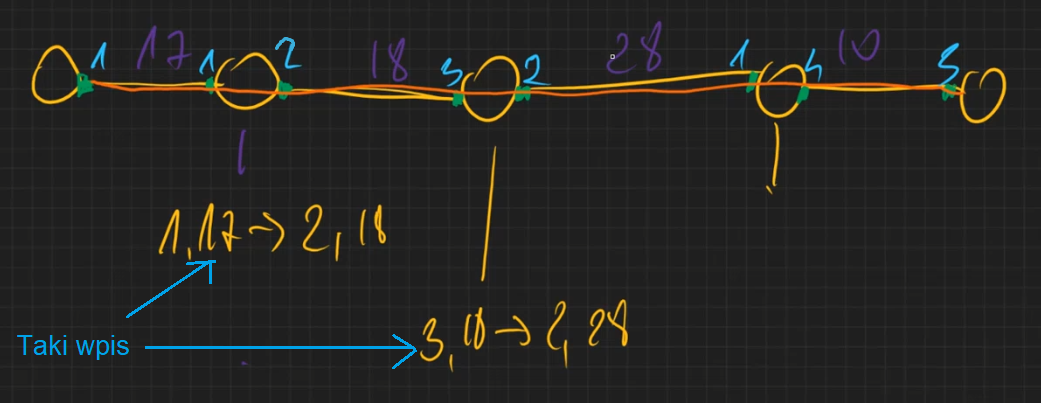 1 17 1 2 18 3 2 28 1 4 10 3
1,17→2,18
3,18→2,28
Taki wpis